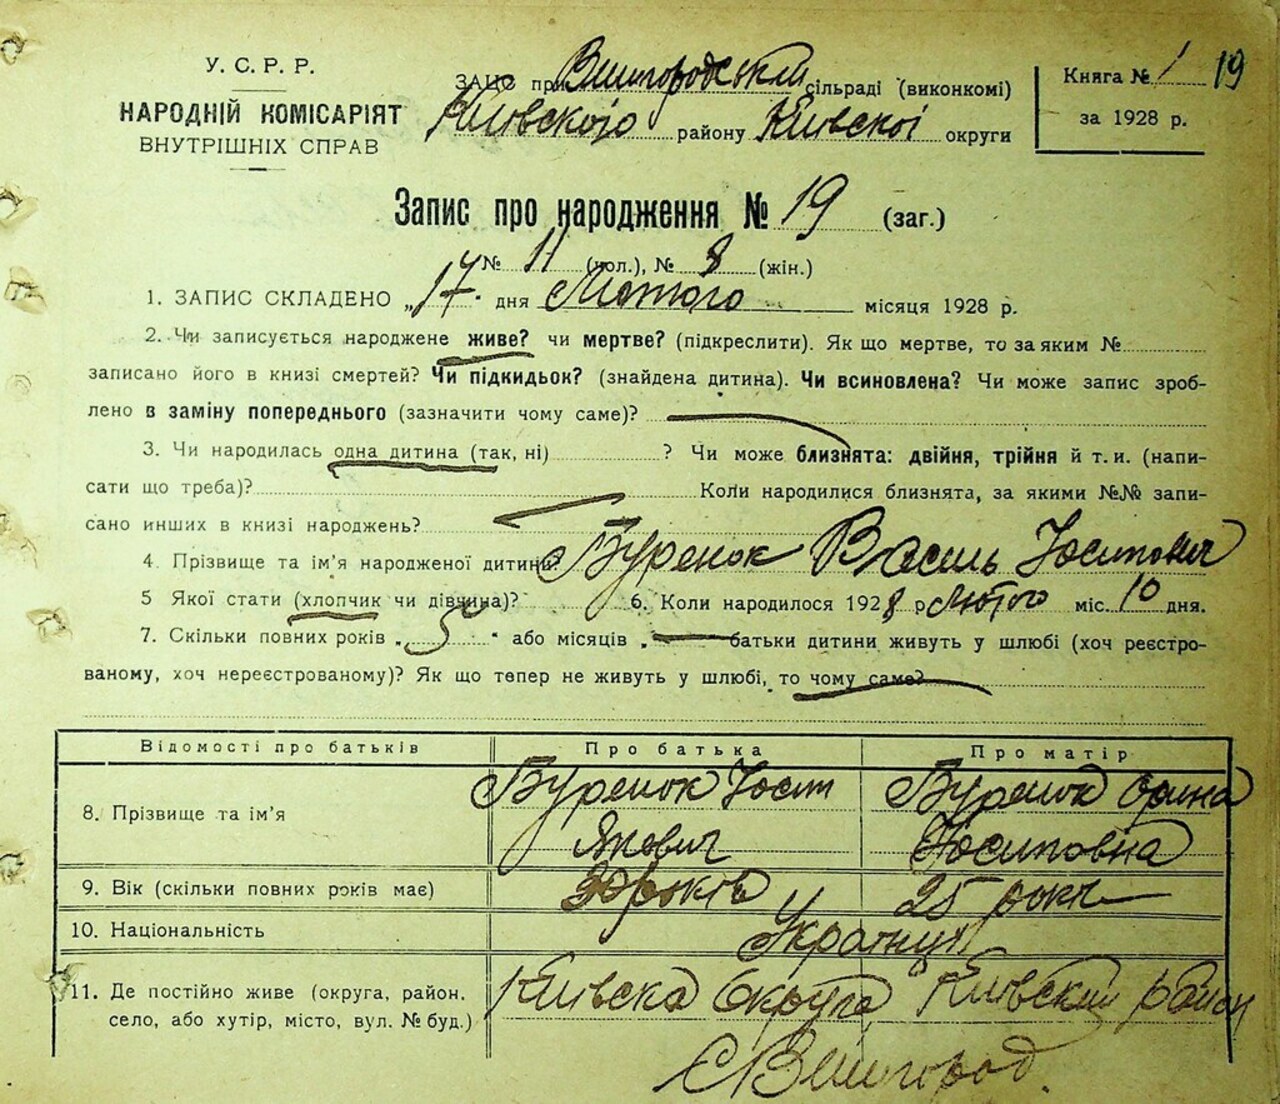 У. С. Р. Р.
НАРОДНІЙ КОМІСАРІЯТ
ВНУТРІШНІХ СПРАВ
ЗАЦС при Вишгородськи сільраді (виконкомі)
Київского району Київскої округи
Книга № 1 19
за 1928 р.
Запис про народження № 19 (заг.)
№ 11 (чол.), № 8 (жін.)
1. ЗАПИС СКЛАДЕНО „17 дня Лютого місяця 1928 р.
2. Чи записується народжене живе? чи мертве? (підкреслити). Як що мертве, то за яким №
записано його в книзі смертей? Чи підкидьок? (знайдена дитина). Чи всиновлена? Чи може запис зроб-
лено в заміну попереднього (зазначити чому саме)?
3. Чи народилась одна дитина (так, ні) ? Чи може близнята: двійня, трійня й т. и. (напи-
сати що треба)? Коли народилися близнята, за якими №№ запи-
сано инших в книзі народжень?
4. Прізвище та ім'я народженої дитини? Буренок Василь Йосипович
5 Якої стати (хлопчик чи дівчина)? 6. Коли народилося 1928 р Лютого міс. 10 дня.
7. Скільки повних років „ 5 " або місяців „ батьки дитини живуть у шлюбі (хоч реєстро-
ваному, хоч нереєстрованому)? Як що тепер не живуть у шлюбі, то чому саме?
Відомості про батьків Про батька Про матір
8. Прізвище та ім'я Буренок Йосип Буренок Орина
Якович Йосиповна
9. Вік (скільки повних років має) 30 років 25 роки
10. Національність Українці
11. Де постійно живе (округа, район, Київска Округа Київский район
село, або хутір, місто, вул. № буд.)
С Вишгород.